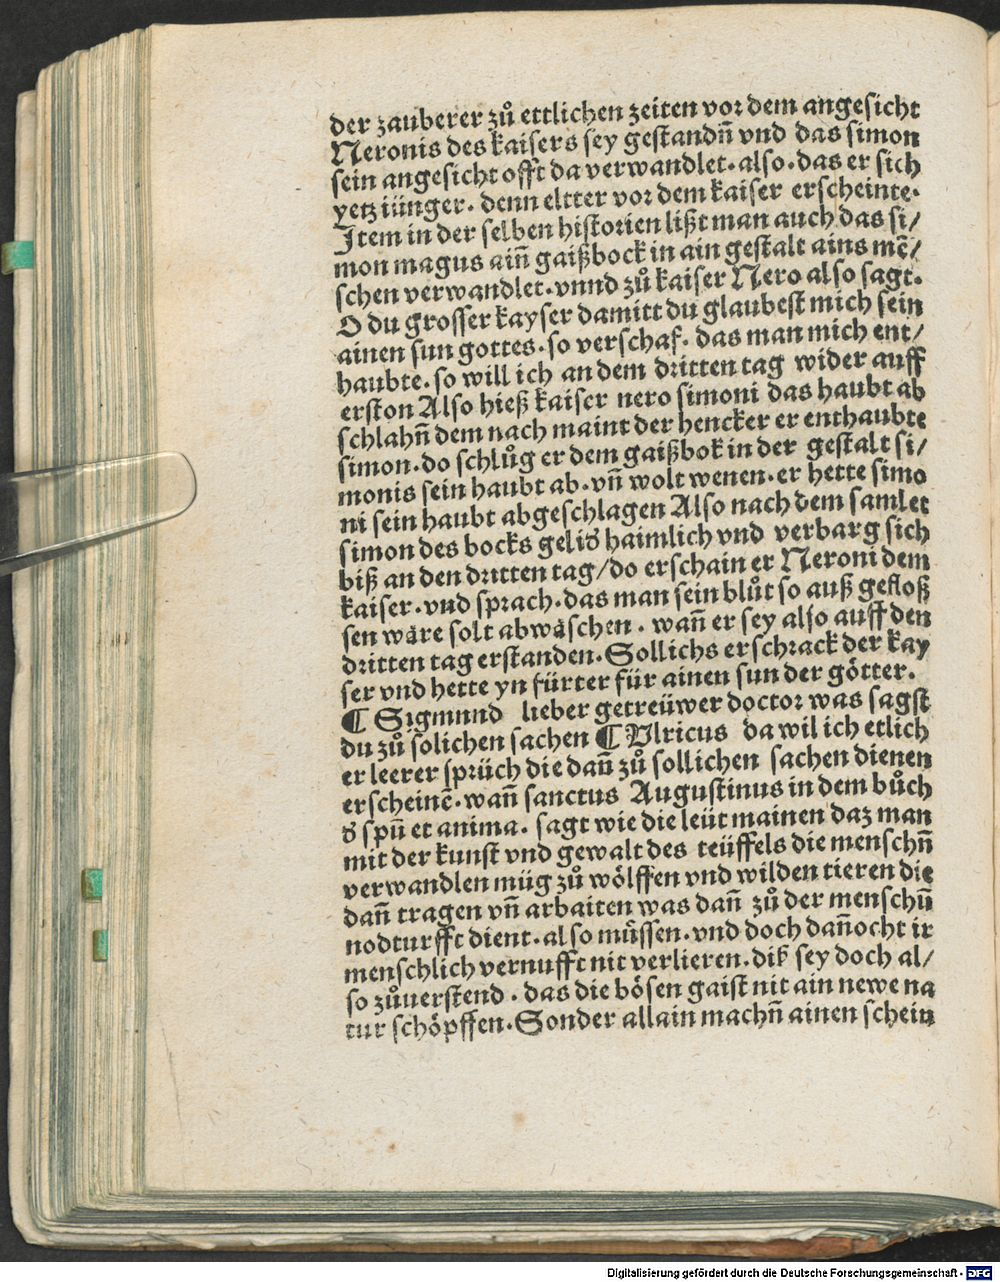 der zauberer zů ettlichen zeiten vor dem angesicht
Neronis des kaisers sey gestandn̄ vnd das simon
sein angesicht offt da verwandlet. also. das er sich
yetz iünger. denn eltter vor dem kaiser erscheinte.
Item in der selben historien lißt man auch das si/
mon magus ain̄ gaißbock in ain gestalt ains mē/
schen verwandlet. vnnd zů kaiser Nero also sagt.
O du grosser kayser damitt du glaubest mich sein
ainen sun gottes. so verschaf. das man mich ent/
haubte. so will ich an dem dritten tag wider auff
erston Also hieß kaiser nero simoni das haubt ab
schlahn̄ dem nach maint der hencker er enthaubte
simon. do schlůg er dem gaißbok in der gestalt si/
monis sein haubt ab. vn̄ wolt wenen. er hette simo
ni sein haubt abgeschlagen Also nach dem samlet
simon des bocks gelid' haimlich vnd verbarg sich
biß an den dritten tag/do erschain er Neroni dem
kaiser. vnd sprach. das man sein blůt so auß gefloß
sen wäre solt abwäschen. wan̄ er sey also auff den
dritten tag erstanden. Sollichs erschrack der kay
ser vnd hette yn fürter für ainen sun der götter.
¶ Sigmund lieber getreüwer doctor was sagst
du zů solichen sachen ¶ Vlricus da wil ich etlich
er leerer sprüch die dan̄ zů sollichen sachen dienen
erscheinē. wan̄ sanctus Augustinus in dem bůch
d' spū et anima. sagt wie die leüt mainen daz man
mit der kunst vnd gewalt des teüffels die menschn̄
verwandlen müg zů wölffen vnd wilden tieren die
dan̄ tragen vn̄ arbaiten was dan̄ zů der menschn̄
nodturfft dient. also müssen. vnd doch dan̄ocht ir
menschlich vernufft nit verlieren. diß sey doch al/
so zůuerstend. das die bösen gaist nit ain newe na
tur schöpffen. Sonder allain machn̄ ainen schein
Digitalisierung gefördert durch die Deutsche Forschungsgemeinschaft - DFG